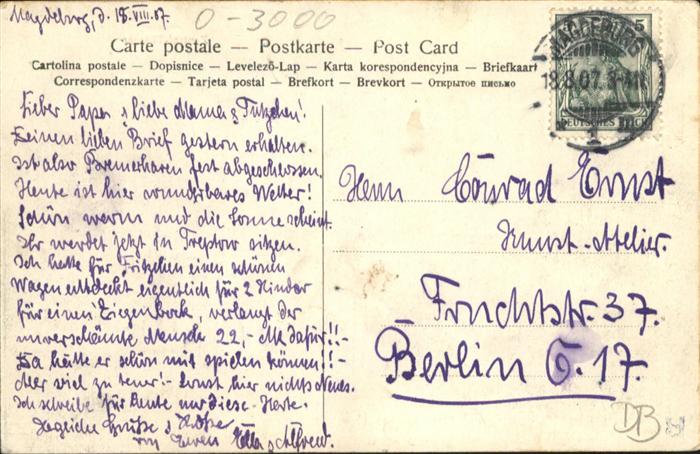 Magdeburg, d. 18.VIII.07.
0-3000
Carte postale — Postkarte — Post Card
Cartolina postale — Dopisnice — Levelező-Lap — Karta korespondencyjna — Briefkaart
Correspondenzkarte — Tarjeta postal — Brefkort — Brevkort — Открытое письмо
Lieber Papa, liebe Mama &
Deinen lieben Brief gestern erhalten.
Ist also Bremerhaven fest abgeschlossen.
Heute ist hier wunderbares Wetter!
Schön warm und die Sonne scheint.
Ihr werdet jetzt in Treptow sitzen.
Ich hatte für Fritzchen einen schönen
Wagen entdeckt eigentlich für 2 Kinder
für einen Ziegenbock, verlangt der
unverschämte Mensch 22,- Mk dafür!!-
Da hätte er schön mit spielen können!!-
Aber viel zu teuer!- Sonst hier nichts Neues.
Ich schreibe für Heute nur diese Karte.
Grüße & Küße
von Euren Ella & Alfred.
MAGDEBURG
18.8.07.
1
5
DEUTSCHES REICH
Herrn Conrad Ernst
Kunst-Atelier.
Fruchtstr. 37.
Berlin O. 17.
DB